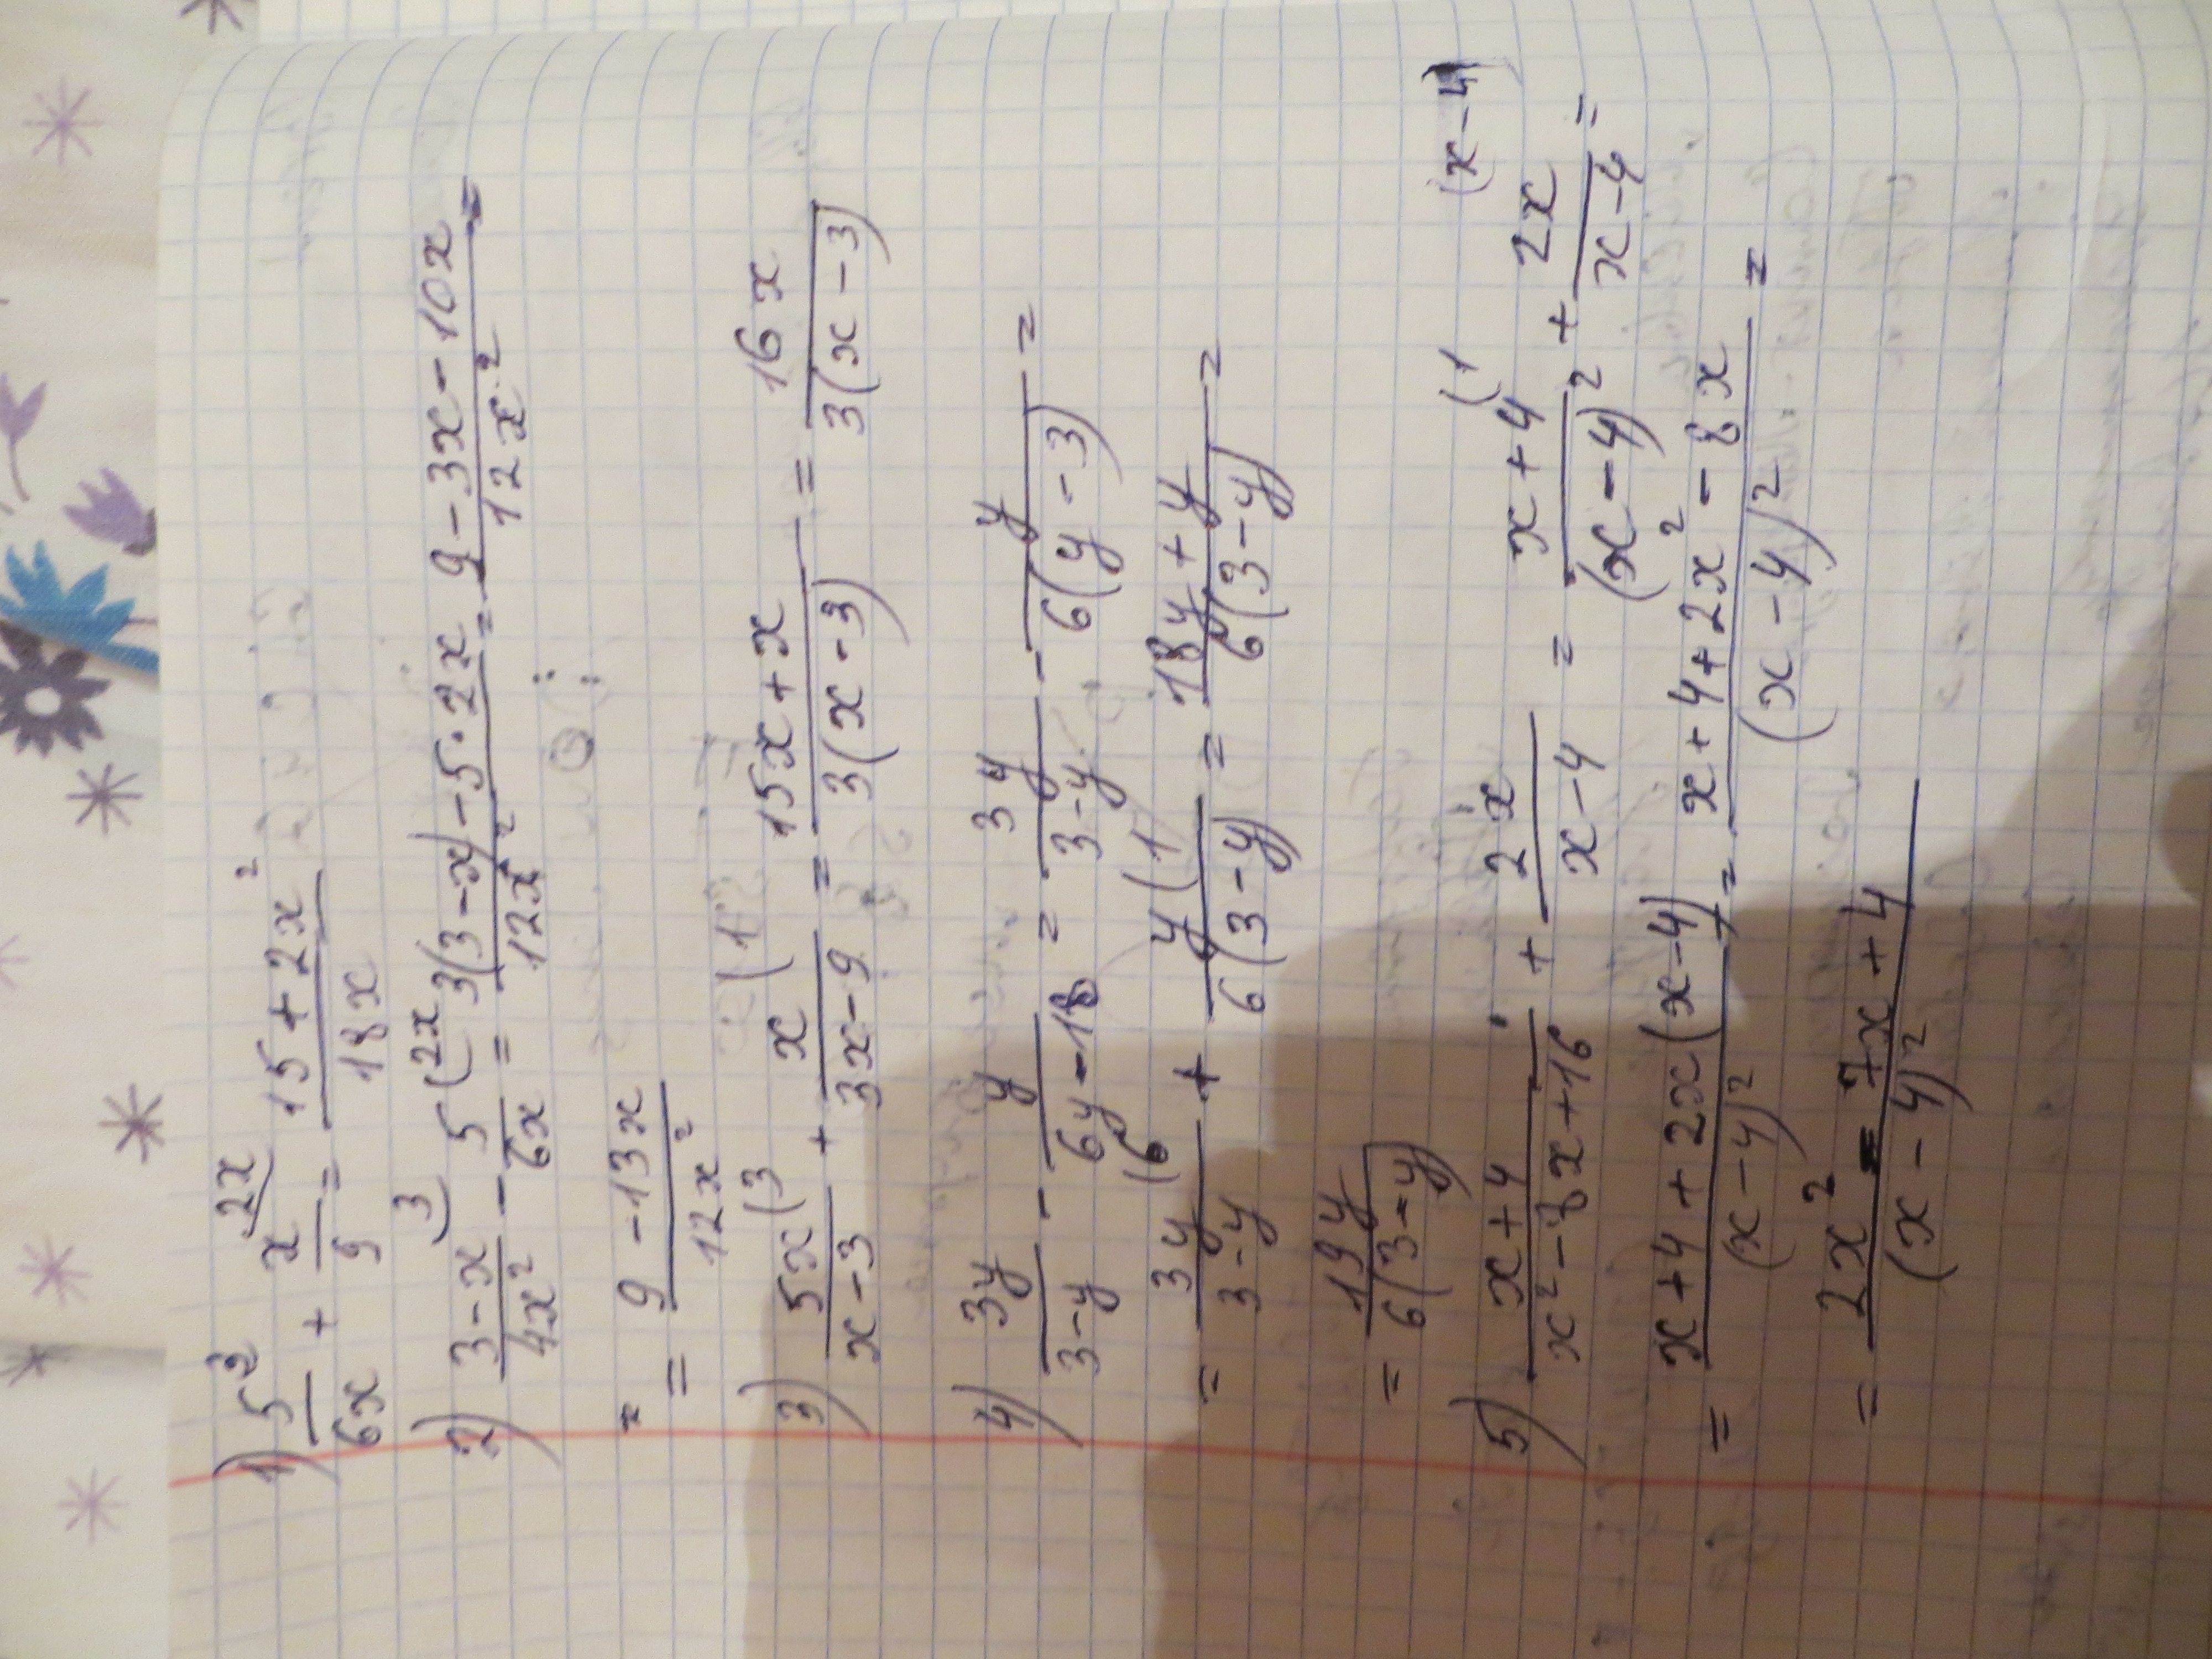 1) 5/6x (3 + x/9 (2x = (15 + 2x²)/18x
2) (3-x)/4x² (3 - 5/6x (2x = (3(3-x) - 5·2x)/12x² = (9 - 3x - 10x)/12x² =
= (9 - 13x)/12x²
3) 5x/(x-3) (3 + x/(3x-9) (1 = (15x+x)/3(x-3) = 16x/3(x-3)
4) 3y/(3-y) - y/(6y-18) = 3y/(3-y) - y/6(y-3) =
= 3y/(3-y) (6 + y/6(3-y) (1 = (18y+y)/6(3-y) =
= 19y/6(3-y)
5) (x+4)/(x²-8x+16) + 2x/(x-4) = (x+4)/(x-4)² (1 + 2x/(x-4) (x-4) =
= (x+4+2x(x-4))/(x-4)² = (x+4+2x²-8x)/(x-4)² =
= (2x²-7x+4)/(x-4)²